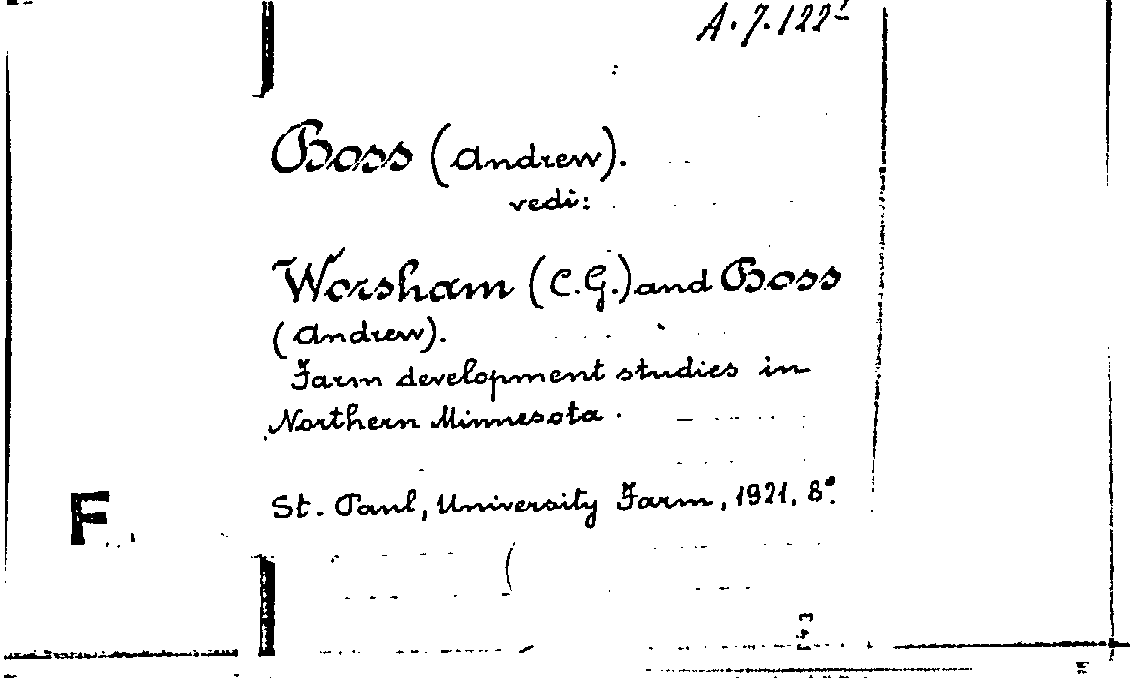 A. 7. 122²
Boss (Andrew).
vedi:
Worsham (C.G.) and Boss
(Andrew).
Farm development studies in
Northern Minnesota.
F
St. Paul, University Farm, 1921, 8°.